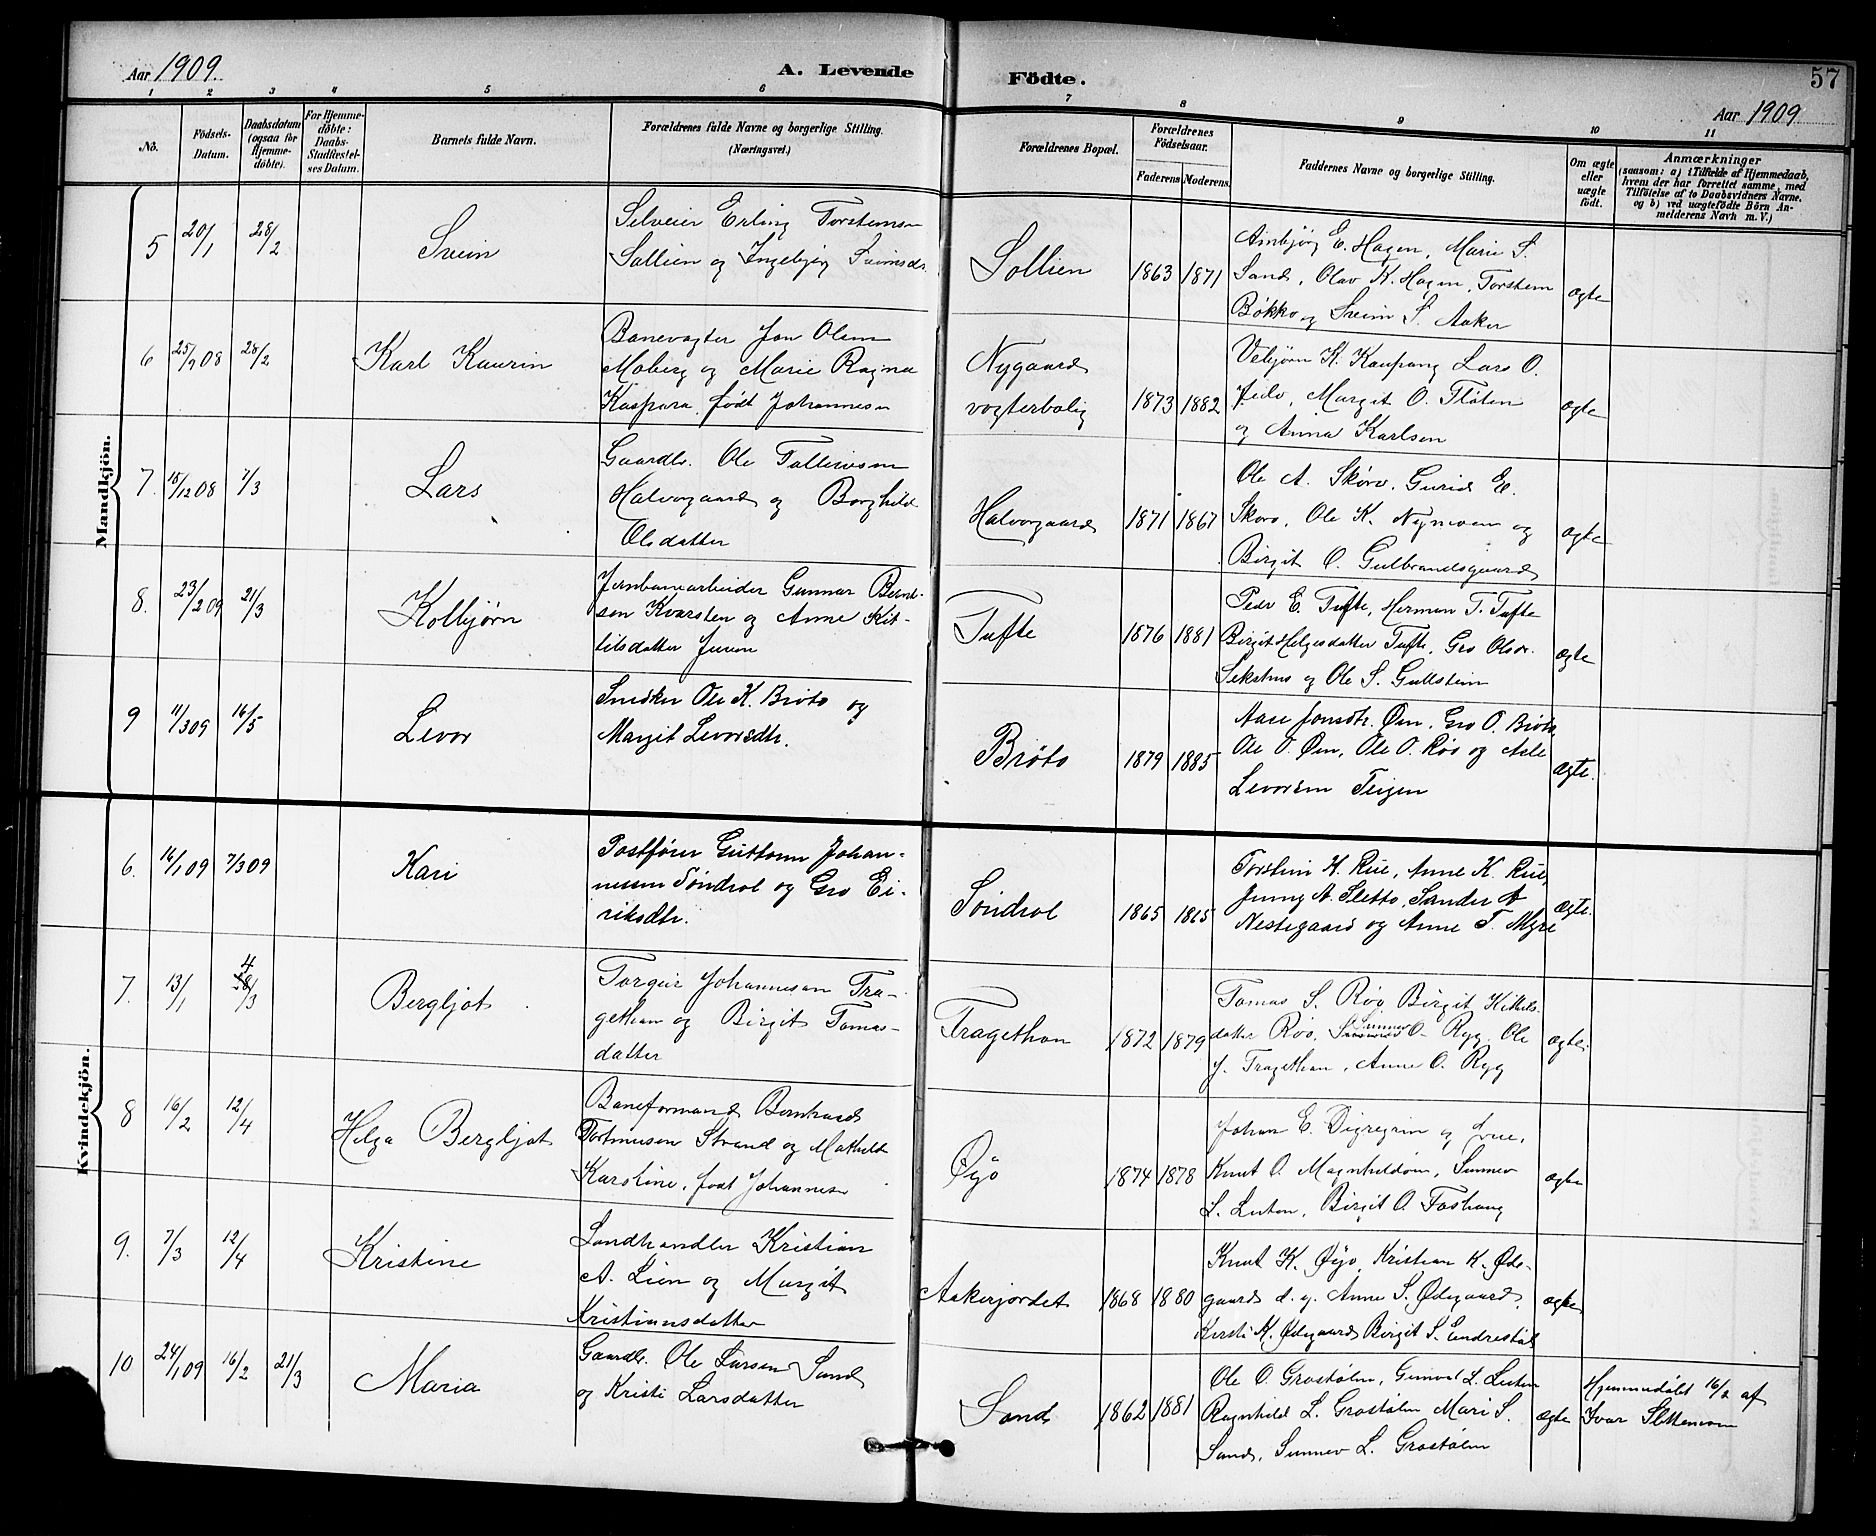 Aar 1909.
A. Levende
Födte.
57
Aar 1909
1 2 3 4 5 6 7 8 9 10 11
No.
Födsels-
Datum.
Daabsdatum
(ogsaa for
Hjemme-
döbte).
For Hjemme-
döbte:
Daabs-
Stadfæstel-
ses Datum.
Barnets fulde Navn.
Forældrenes fulde Navne og borgerlige Stilling.
(Næringsvei.)
Forældrenes Bopæl.
Forældrenes
Födselsaar.
Faderens Moderens.
Faddernes Navne og borgerlige Stilling.
Om ægte
eller
uægte
født.
Anmærkninger
(saasom: a) i Tilfælde af Hjemmedaab,
hvem der har forrettet samme, med
Tilföielse af to Daabsvidners Navne.
og b) ved uægtefödte Börn An-
melderens Navn m. V.)
Mandkjön.
5 20/1 28/2 Svein
Selveier Erling Torstensen
Sollien og Ingebjørg Sveinsdr.
Sollien 1863 1871
Ambjørg E. Hagen, Marie S.
Sand, Olav K. Hagen, Torstein
Bøkko og Svein S. Aaker
ægte
6 25/9 08 28/2 Karl Kaurin
Banevogter Jon Olsen
Moberg og Marie Ragna
Kaspara, født Johannesen
Nygaard
vogterbolig 1873 1882
Vebjørn K. Kaupang Lars O.
Jelo, Margit O. Fløten
og Anna Karlsen
ægte
7. 18/12 08 7/3 Lars
Gaardbr. Ole Tollevsen
Halvorgaard og Borghild
Olsdatter
Halvorgaard 1871 1867
Ole A. Skøro, Gurid E.
Skøro, Ole K. Nymoen og
Birgit O. Gulbrandsgaard
ægte
8. 23/2 09 21/3 Kolbjørn
Jernbanearbeider Gunnar Bernt-
sen Kvarsten og Anne Kit-
tilsdatter Juven
Tufte 1876 1881
Peder E. Tufte, Herman T. Tufte
Birgit Helgesdatter Tufte, Gro Olsdr.
Sekshus og Ole S. Gullstein
ægte
9 11/3 09 16/5 Levor
Snedker Ole K. Brøto og
Margit Levorsdtr.
Brøto 1879 1885
Aase Jonsdtr. Øen, Gro O. Brøto
Ole O. Øen, Ole O. Røo og Asle
Levorsen Teigen
ægte.
Kvindekjön.
6. 14/1 09 7/3 09 Kari
Postfører Guttorm Johan-
nessen Søndrol og Gro Ei-
riksdtr.
Søndrol 1865 1865
Torstein H. Rue, Anne K. Rue,
Jenny A. Sletto, Sander A
Nestegaard og Anne T. Myre
ægte.
7. 13/1 4/3 Bergljot
Torgeir Johannesen Tra-
gethon og Birgit Tomas-
datter
Tragethon 1872 1879
Tomas S. Røo, Birgit Kittils-
datter Røo, Sunnev O. Ryg, Ole
J. Tragethon, Anne O. Ryg
ægte.
8 16/2 12/4 Helga Bergljot
Baneformand Bernhard
Tormusen Strand og Mathild
Karoline, født Johannesen
Øyo 1874 1878
Johan E. Digregrin og frue,
Knut O. Magnhildøen, Sunnev
L. Luten, Birgit O. Foshaug
ægte
9. 7/3 12/4 Kristine
Landhandler Kristian
A. Lien og Margit
Kristiansdatter
Aakerjordet 1868 1880
Knut K. Øyo, Kristian K. Øde-
gaard d.y. Anne S. Ødegaard,
Kersti K. Ødegaard Birgit S. Endrestøl
ægte
10 24/1 09 16/2 21/3 Maria
Gaardbr. Ole Larsen Sand
og Kristi Larsdatter
Sand 1862 1881
Ole O. Grostølen, Gunvor L. Luten
Ragnhild L. Grostølen Mari S.
Sand, Sunnev L. Grostølen
ægte
Hjemmedøbt 16/2 af
Ivar Slettemoen